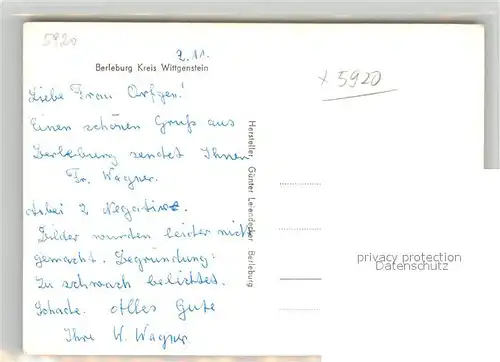 5920
2.11.
Berleburg Kreis Wittgenstein
x 5920
Liebe Frau Orfgen!
Einen schönen Gruß aus
Berleburg sendet Ihnen
Fr. Wagner.
Anbei 2 Negative.
Bilder wurden leider nicht
gemacht. Begründung:
Zu schwach belichtet.
Schade. Alles Gute
Ihre W. Wagner
Hersteller, Günter Leiendecker Berleburg
privacy protection
Datenschutz